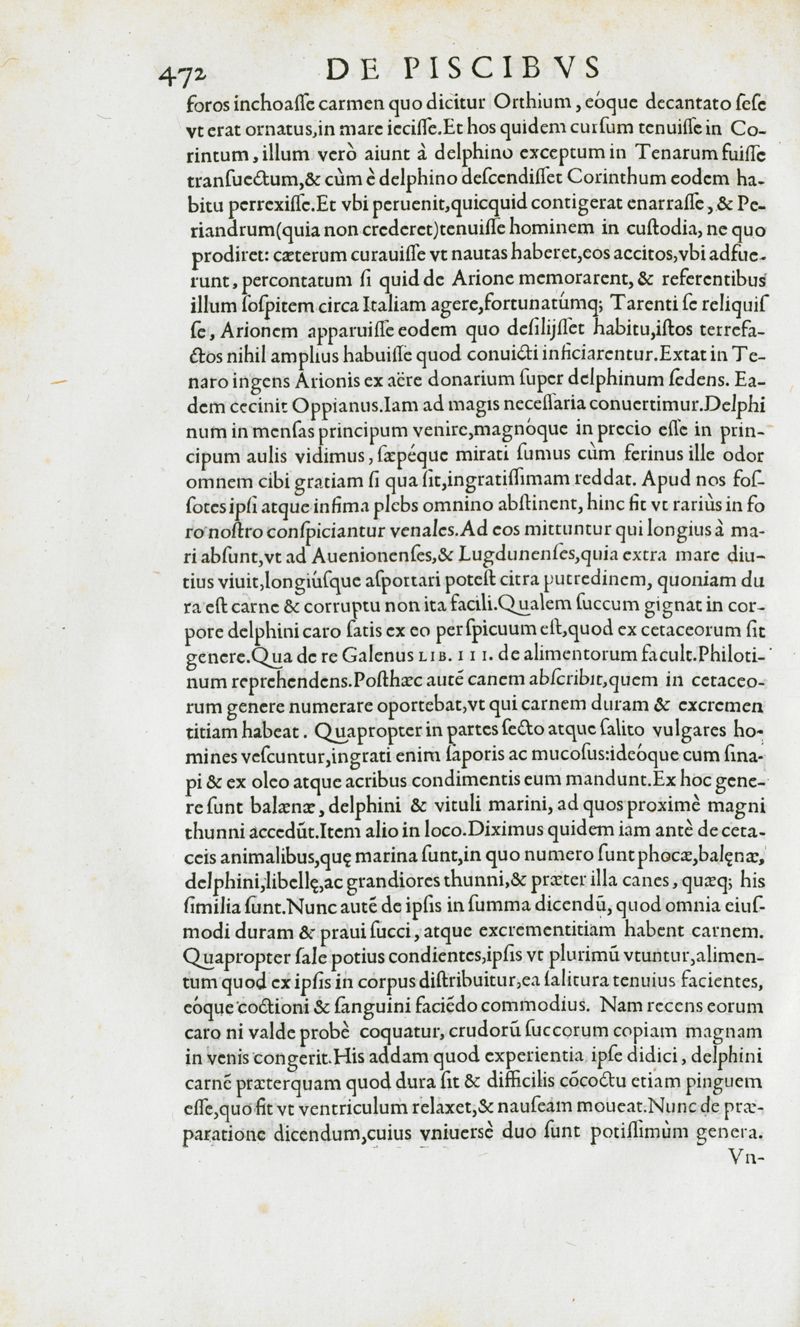 472 DE PISCIBVS
foros inchoaſſe carmen quo dicitur Orthium, eóque decantato ſeſe
vt erat ornatus,in mare ieciſſe.Et hos quidem curſum tenuiſſe in Co-
rintum, illum verò aiunt à delphino exceptum in Tenarum fuiſſe
tranſuectum,& cùm è delphino deſcendiſſet Corinthum eodem ha-
bitu perrexiſſe.Et vbi peruenit,quicquid contigerat enarraſſe, & Pe-
riandrum(quia non crederet)tenuiſſe hominem in cuſtodia, ne quo
prodiret: cæterum curauiſſe vt nautas haberet,eos accitos,vbi adfue-
runt, percontatum ſi quid de Arione memorarent, & referentibus
illum ſoſpitem circa Italiam agere,fortunatúmq; Tarenti ſe reliquiſ
ſe, Arionem apparuiſſe eodem quo deſilijſſet habitu,iſtos terrefa-
ctos nihil amplius habuiſſe quod conuicti inficiarentur.Extat in Te-
naro ingens Arionis ex aëre donarium ſuper delphinum ſedens. Ea-
dem cecinit Oppianus.Iam ad magis neceſſaria conuertimur.Delphi
num in menſas principum venire,magnóque in precio eſſe in prin-
cipum aulis vidimus, ſæpéque mirati ſumus cùm ferinus ille odor
omnem cibi gratiam ſi qua ſit,ingratiſſimam reddat. Apud nos foſ-
ſotes ipſi atque infima plebs omnino abſtinent, hinc fit vt rariùs in fo
ro noſtro conſpiciantur venales.Ad eos mittuntur qui longius à ma-
ri abſunt,vt ad Auenionenſes,& Lugdunenſes,quia extra mare diu-
tius viuit,longiúſque aſportari poteſt citra putredinem, quoniam du
ra eſt carne & corruptu non ita facili.Qualem ſuccum gignat in cor-
pore delphini caro ſatis ex eo perſpicuum eſt,quod ex cetaceorum ſit
genere.Qua de re Galenus LIB. III. de alimentorum facult.Philoti-
num reprehendens.Poſthæc autẽ canem abſcribit,quem in cetaceo-
rum genere numerare oportebat,vt qui carnem duram & excremen
titiam habeat. Quapropter in partes ſecto atque ſalito vulgares ho-
mines veſcuntur,ingrati enim ſaporis ac mucoſus:ideóque cum ſina-
pi & ex oleo atque acribus condimentis eum mandunt.Ex hoc gene-
re ſunt balænæ, delphini & vituli marini, ad quos proximè magni
thunni accedũt.Item alio in loco.Diximus quidem iam antè de ceta-
ceis animalibus,quę marina ſunt,in quo numero ſunt phocæ,balęnæ,
delphini,libellę,ac grandiores thunni,& præter illa canes, quæq; his
ſimilia ſunt.Nunc autẽ de ipſis in ſumma dicendũ, quod omnia eiuſ-
modi duram & praui ſucci, atque excrementitiam habent carnem.
Quapropter ſale potius condientes,ipſis vt plurimũ vtuntur,alimen-
tum quod ex ipſis in corpus diſtribuitur,ea ſalitura tenuius facientes,
eóque coctioni & ſanguini faciẽdo commodius. Nam recens eorum
caro ni valde probè coquatur, crudorũ ſuccorum copiam magnam
in venis congerit.His addam quod experientia ipſe didici, delphini
carnẽ præterquam quod dura ſit & difficilis cõcoctu etiam pinguem
eſſe,quo fit vt ventriculum relaxet,& nauſeam moueat.Nunc de præ-
paratione dicendum,cuius vniuersè duo ſunt potiſſimùm genera.
Vn-